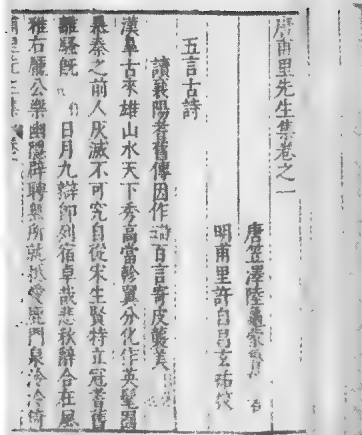 唐甫里先生集卷之一
唐笠澤陸龜蒙魯望著
明甫里許自昌玄祐校
五言古詩
讀襄陽耆舊傳因作詩五百言寄皮襲美
漢皋古來雄山水天下秀高當軫翼分化作英髦囿
暴秦之前人灰滅不可究自從宋生賢特立冠耆舊
離騷既日月九辯即列宿卓哉悲秋辭合在風
雅右龐公樂幽隱辟聘無所就秪愛鹿門泉泠泠倚